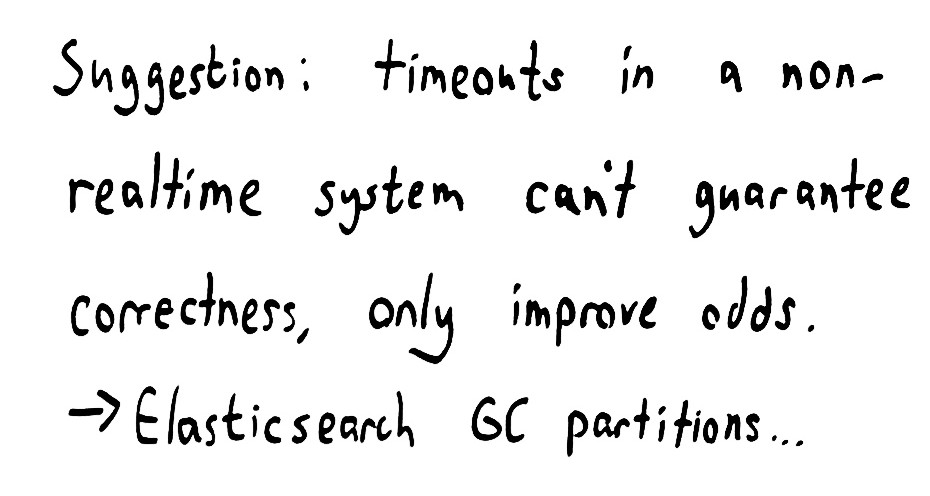 Suggestion: timeouts in a non-
realtime system can't guarantee
correctness, only improve odds.
→ Elasticsearch GC partitions...